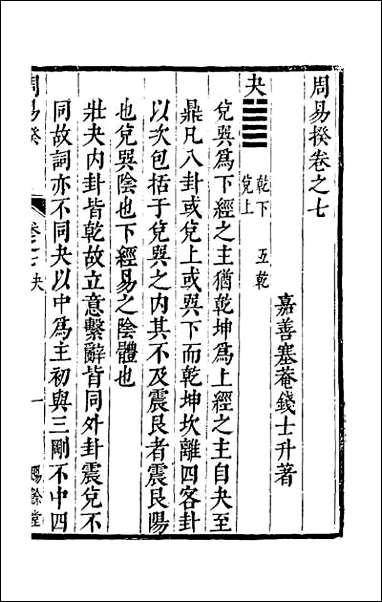 周易揆卷之七
嘉善塞菴錢士升著
夬 乾下 兌上 五乾
兌巽爲下經之主猶乾坤爲上經之主自夬至
鼎凡八卦或兌上或巽下而乾坤坎離四客卦
以次包括于兌巽之內其不及震艮者震艮陽
也兌巽陰也下經易之陰體也
壯夬內卦皆乾故立意繫辭皆同外卦震兌不
同故詞亦不同夬以中爲主初與三剛不中四
周易揆 卷之七夬 一 賜餘堂